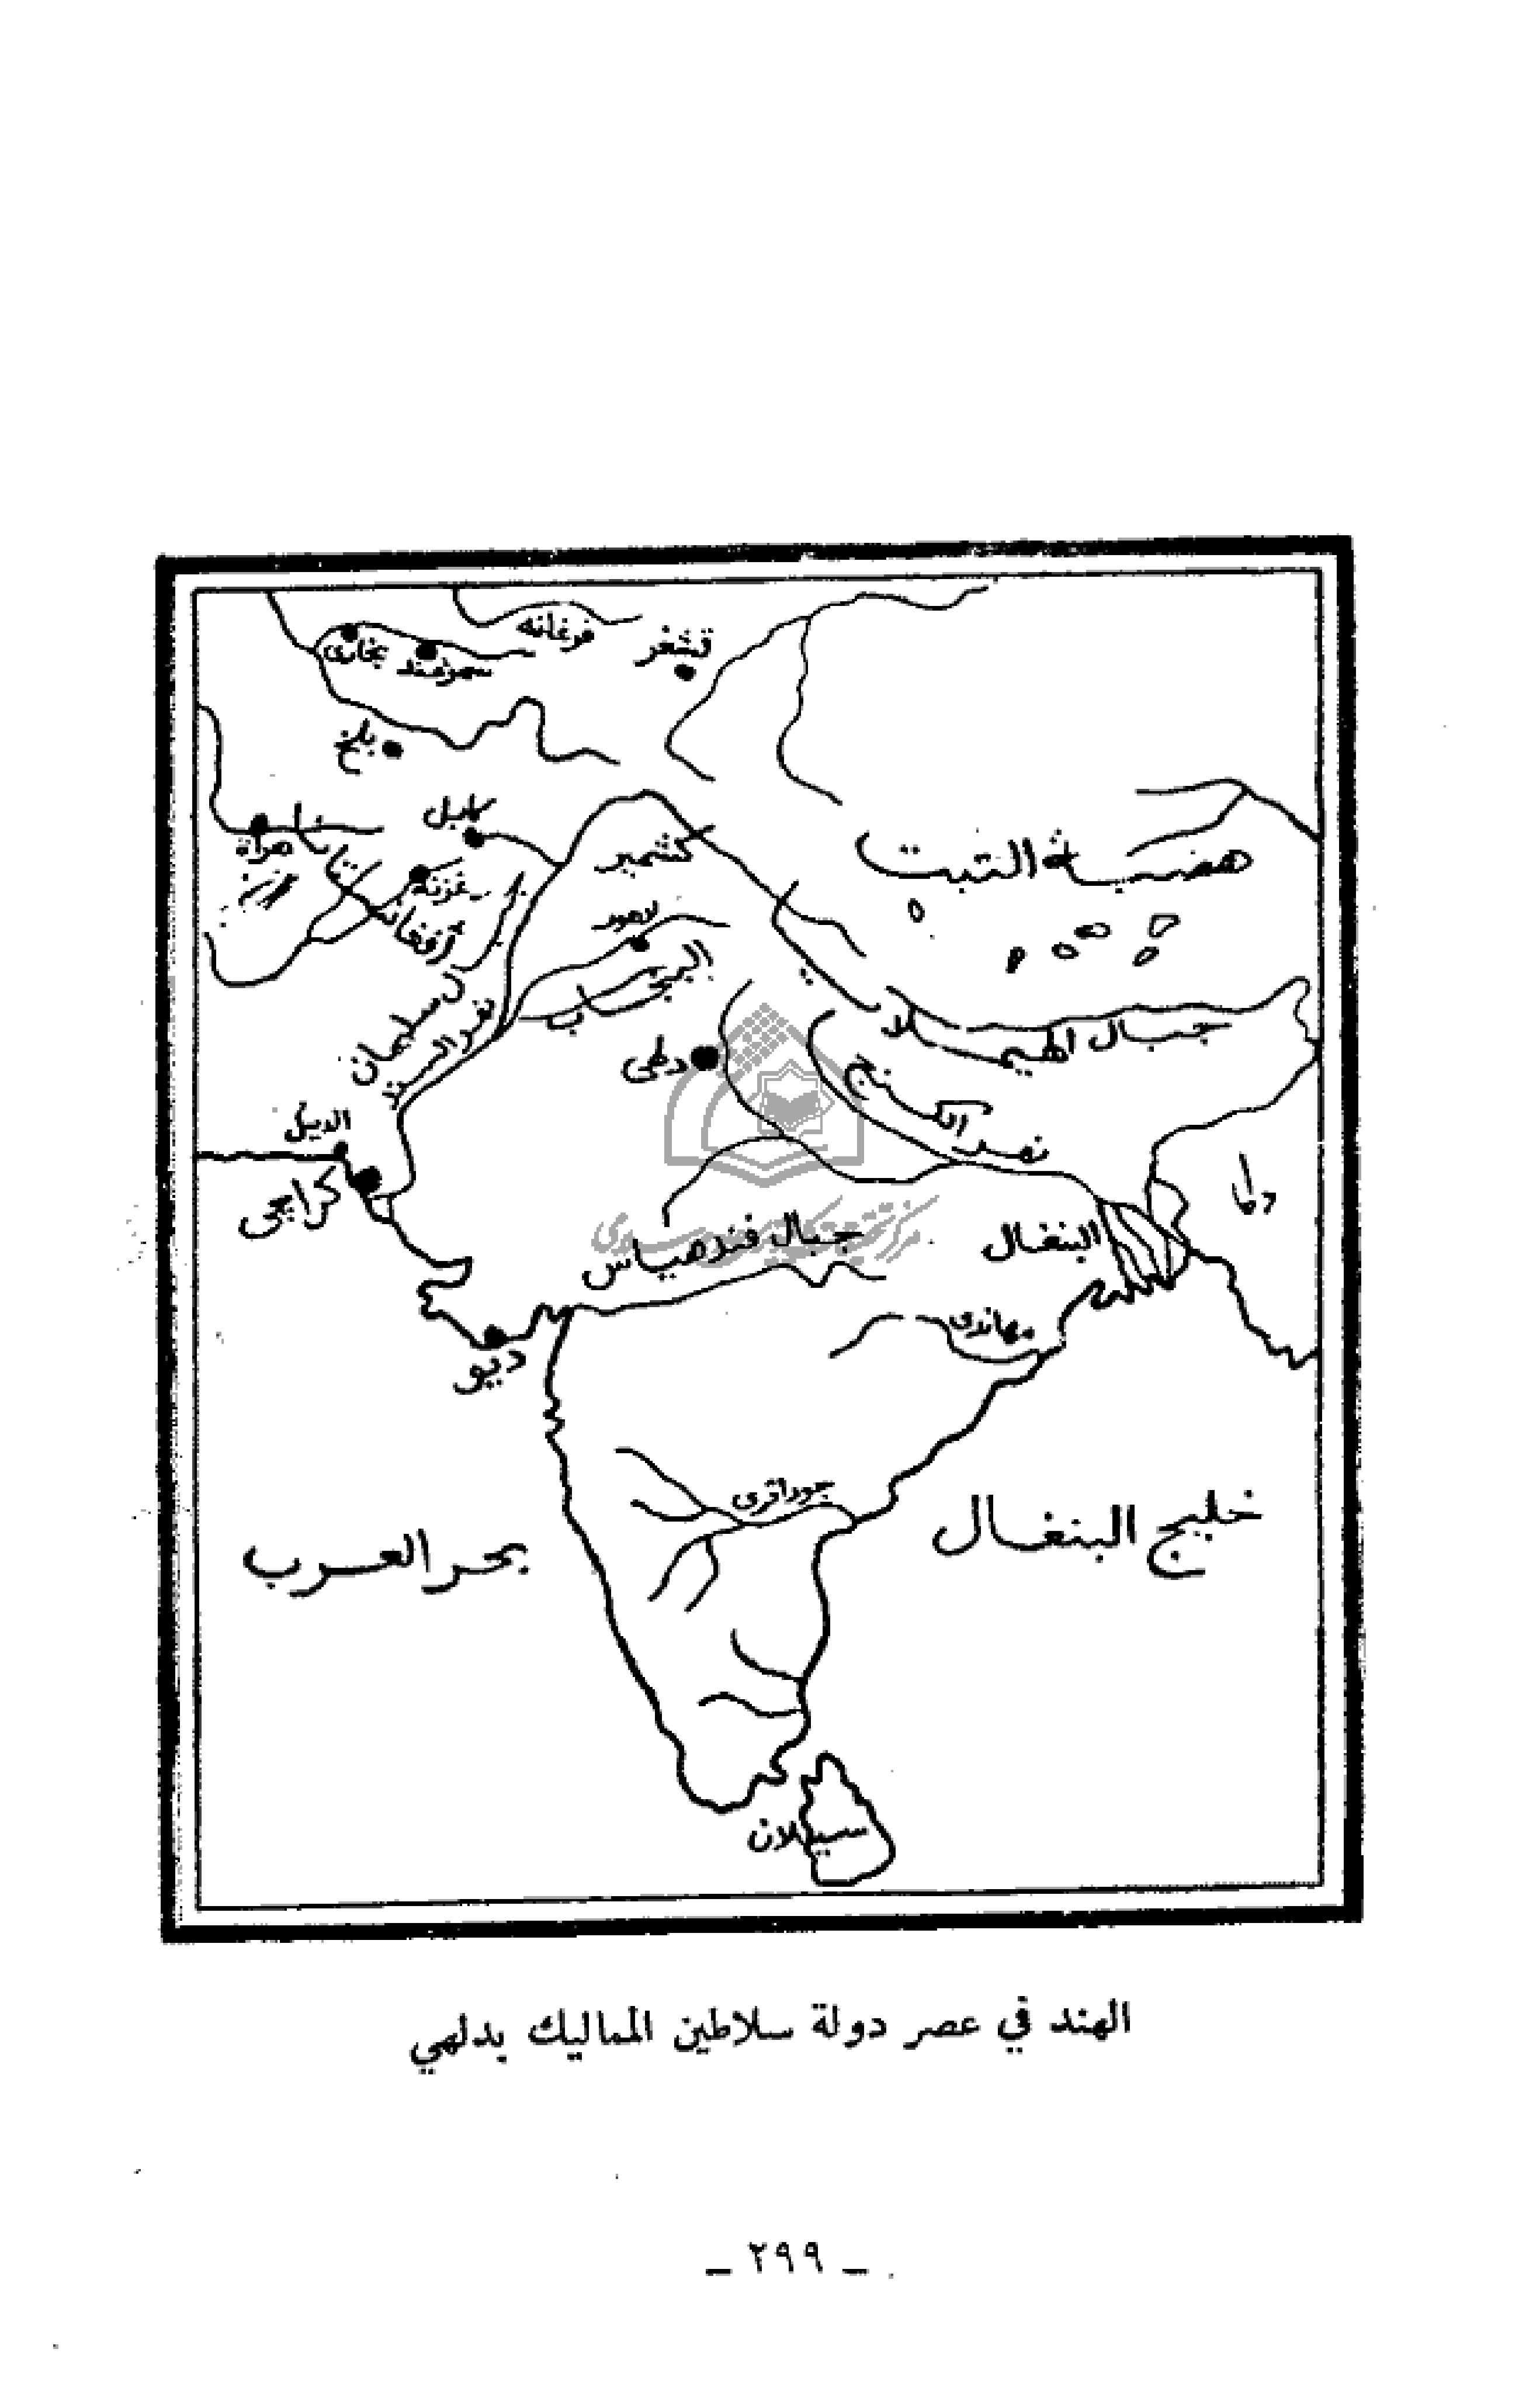 فرغانه
قشغر
بخارى
سمرقند
بلخ
كابل
هراة
غزنه
أفغانستان
كشمير
هضبة التبت
لاهور
البنجاب
جبال الهيملايا
سليمان
نهر السند
دلهى
نهر الكنج
الديبل
كراچى
دكا
جبال فندهياس
البنغال
مهاندى
ديو
جوداقرى
خليج البنغال
بحر العرب
سيلان
الهند في عصر دولة سلاطين المماليك بدلهي
ـ ٢٩٩ ـ